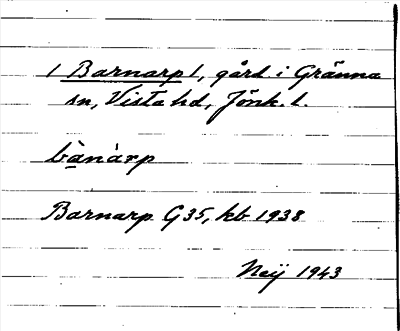 / Barnarp /, gård i Gränna
sn, Vista hd, Jönk. l.
bànàrp
Barnarp G35, kb 1938
Neij 1943